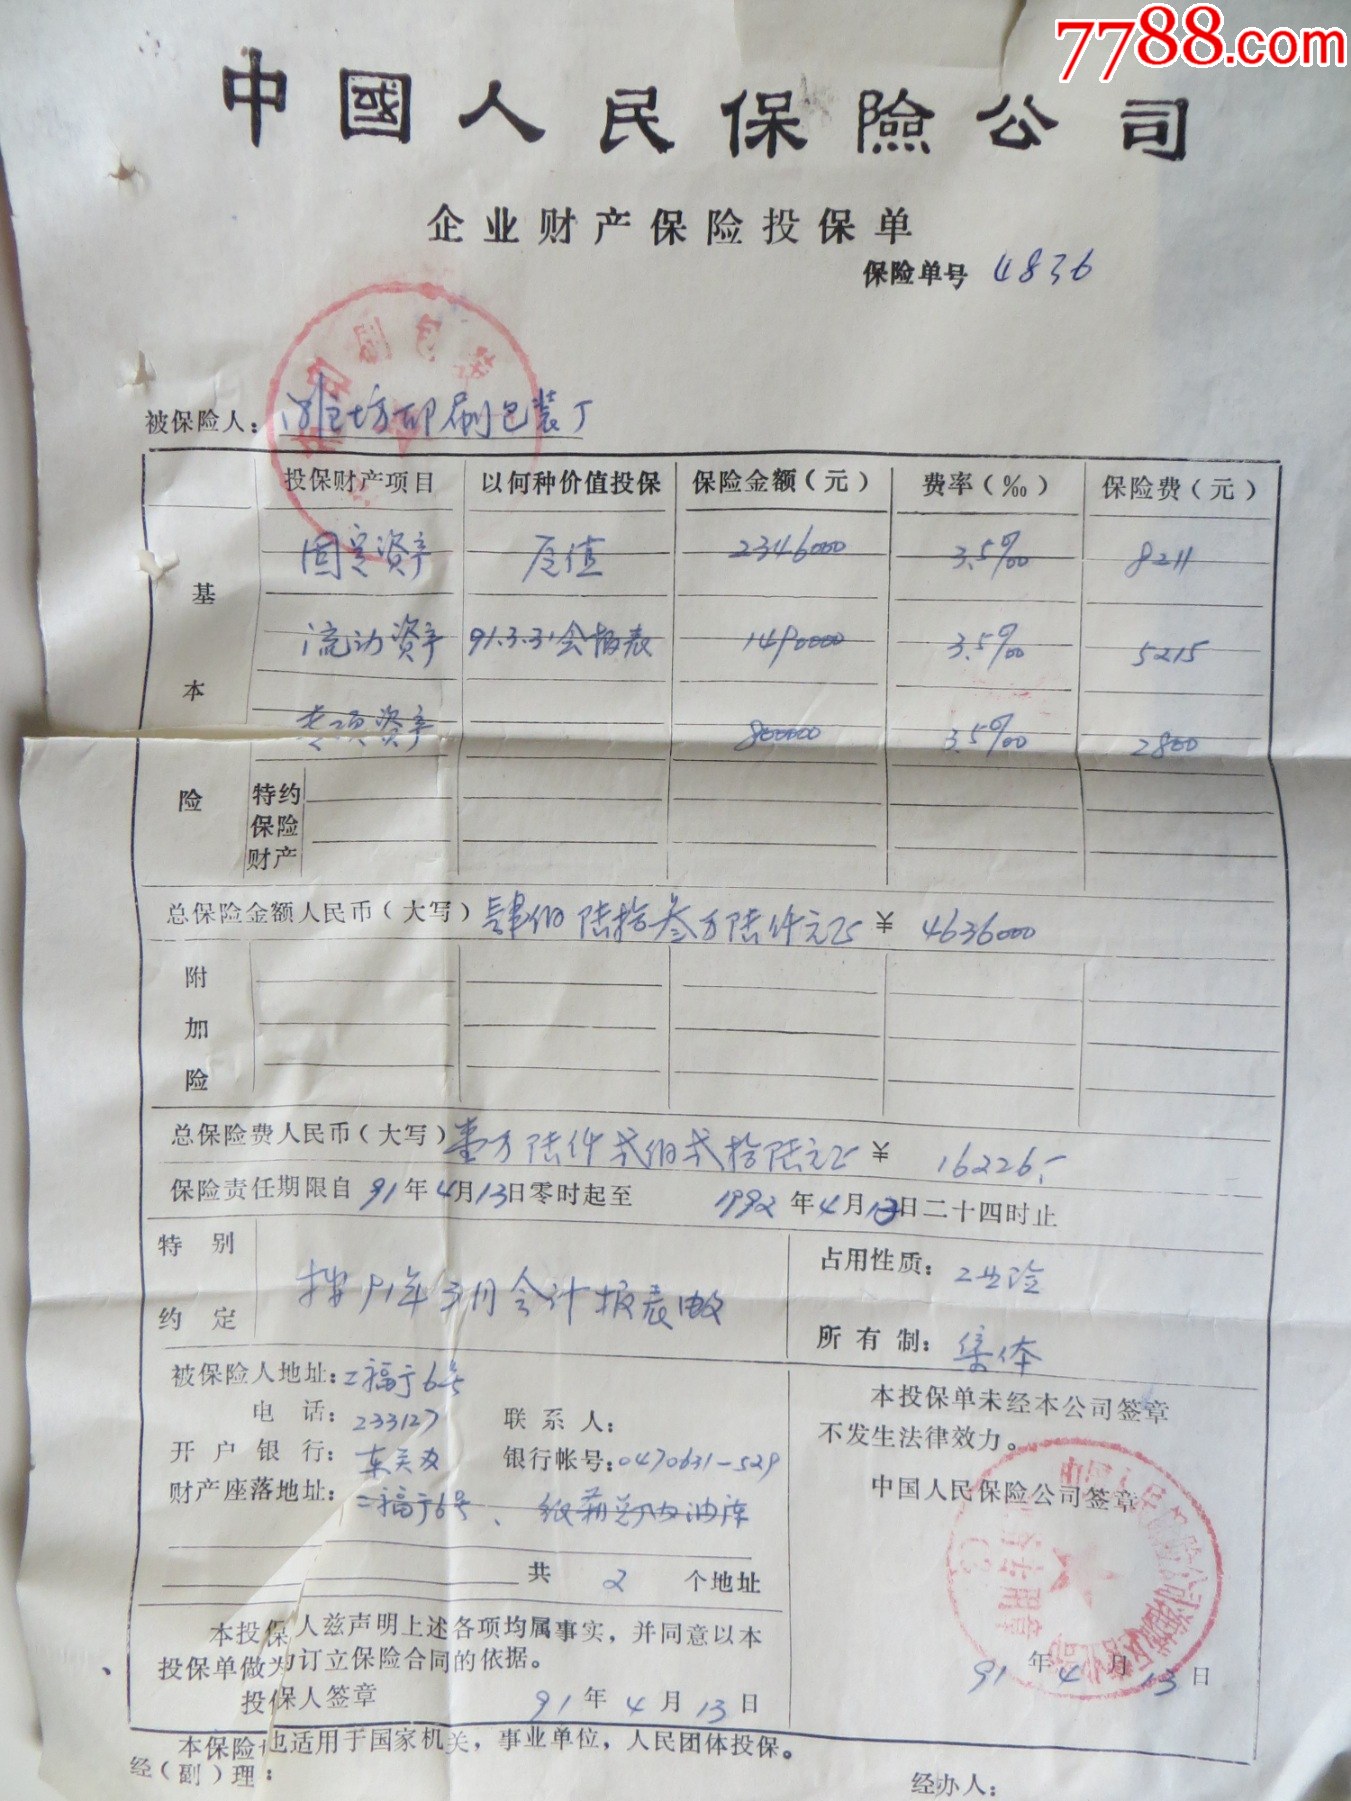 7788.com
中國人民保險公司
企业财产保险投保单
保险单号 4836
被保险人：潍坊印刷包装厂
投保财产项目 以何种价值投保 保险金额（元） 费率（‰） 保险费（元）
基本险
固定资产 原值 2346000 3.5‰ 8211
流动资产 91.3.31会报表 1490000 3.5‰ 5215
专项资产 800000 3.5‰ 2800
特约
保险
财产
总保险金额人民币（大写）肆佰陆拾叁万陆仟元正 ¥ 4636000
附加险
总保险费人民币（大写）壹万陆仟贰佰贰拾陆元正 ¥ 16226.-
保险责任期限自 91年4月13日零时起至 1992年4月13日二十四时止
特别
约定
按91年3月会计报表
占用性质：工业险
所有制：集体
被保险人地址：二福于6号
电话：233127 联系人：
开户银行：东关办 银行帐号：0470631-529
财产座落地址：二福于6号、
共 2 个地址
本投保单未经本公司签章
不发生法律效力。
中国人民保险公司签章
91年4月13日
本投保人兹声明上述各项均属事实，并同意以本
投保单做为订立保险合同的依据。
投保人签章 91年4月13日
本保险也适用于国家机关，事业单位，人民团体投保。
经（副）理： 经办人：